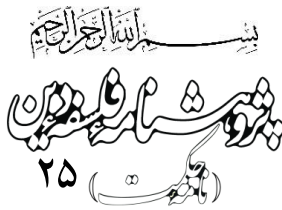 بسم الله الرحمن الرحیم
پژوهشنامه فلسفه دین
۲۵
(نامه حکمت)